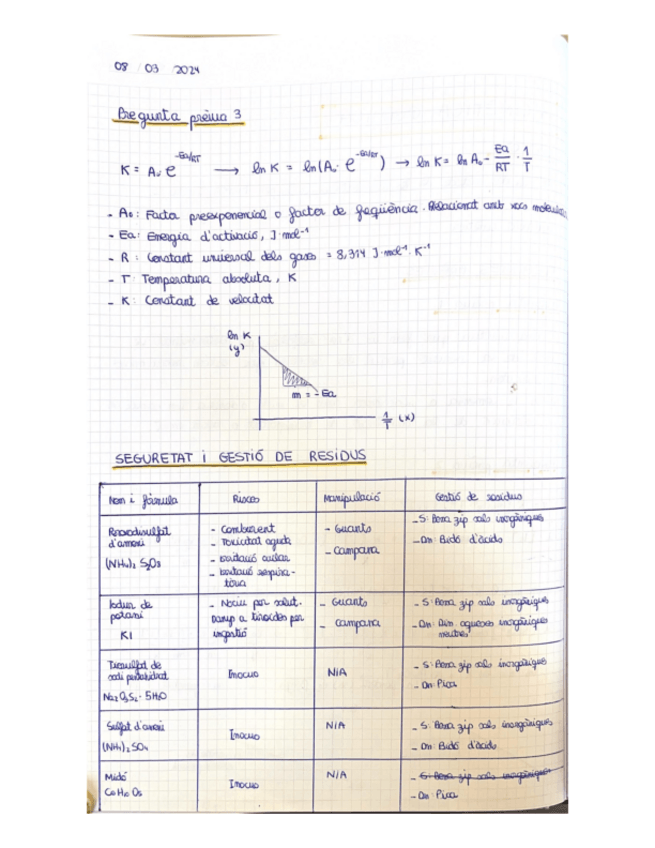 08 / 03 2024
Pregunta prèvia 3
K = A₀ e^-Ea/RT → ln K = ln(A₀ · e^-Ea/RT) → ln K = ln A₀ - Ea/RT · 1/T
- A₀: Factor preexponencial o factor de freqüència. Relacionat amb xocs molecula
- Ea: Energia d'activació, J·mol⁻¹
- R: Constant universal dels gases = 8,314 J·mol⁻¹·K⁻¹
- T: Temperatura absoluta, K
- K: Constant de velocitat
ln K
(y)
m = - Ea
1/T (x)
SEGURETAT i GESTIÓ DE RESIDUS
Nom i fórmula
Riscos
Manipulació
Gestió de residus
Peroxodisulfat
d'amoni
(NH₄)₂ S₂O₈
- Comburent
- Toxicitat aguda
- Irritació ocular
- Irritació respira-
tòria
- Guants
- Campana
- S: Bossa zip sals inorgàniques
- Dn: Bidó d'àcids
Iodur de
potassi
KI
- Nociu per salut.
Dany a tiroides per
ingestió
- Guants
- Campana
- S: Bossa zip sals inorgàniques
- Dn: Disn aquoses inorgàniques
neutres
Tiosulfat de
sodi pentahidrat
Na₂O₃S₂·5H₂O
Inocuo
N/A
- S: Bossa zip sals inorgàniques
- Dn: Pica
Sulfat d'amoni
(NH₄)₂SO₄
Inocuo
N/A
- S: Bossa zip sals inorgàniques
- Dn: Bidó d'àcids
Midó
C₆H₁₀O₅
Inocuo
N/A
- S: Bossa zip sals inorgàniques
- Dn: Pica